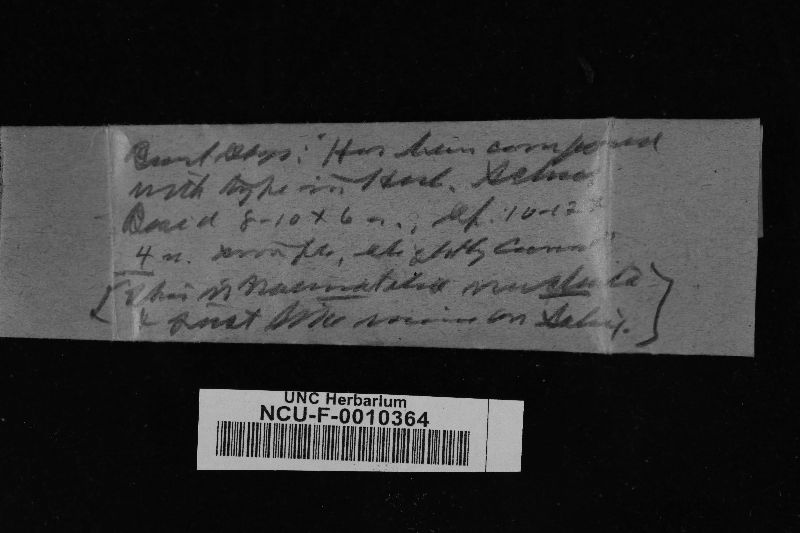 Burt says: "Has been compared
with type in Herb. Schw.
Basid 8-10 x 6 u., sp. 10-12 x
4 u. simple, slightly curved"
[This is Naematelia nucleata
& just like mine on Salix.]
UNC Herbarium
NCU-F-0010364